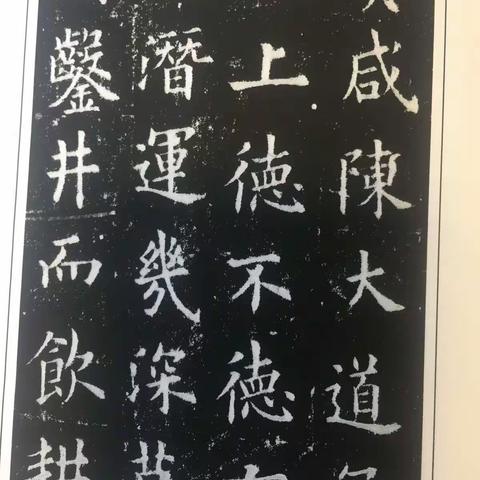 咸陳大道
上德不德
潛運幾深
鑿井而飲耕